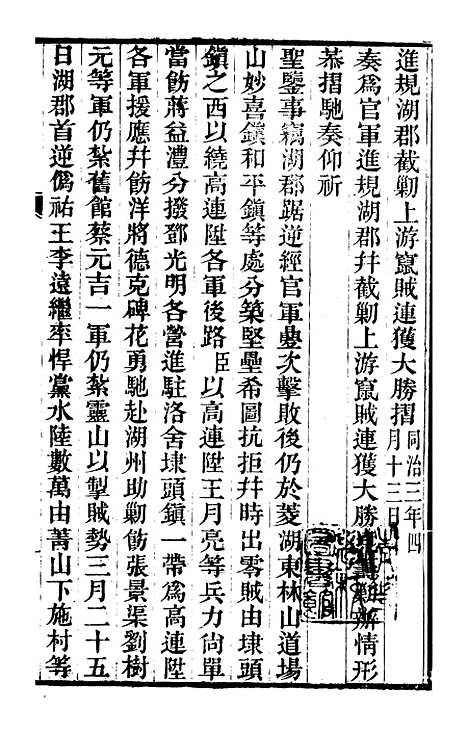 進規湖郡截勦上游竄賊連獲大勝摺同治三年四月十二日
奏爲官軍進規湖郡幷截勦上游竄賊連獲大勝辦情形
恭摺馳奏仰祈
聖鑒事竊湖郡踞逆經官軍疊次擊敗後仍於菱湖東林山道場
山妙喜鎭和平鎭等處分築堅壘希圖抗拒幷時出零賊由埭頭
鎭之西以繞高連陞各軍後路臣以高連陞王月亮等兵力尙單
當飭蔣益澧分撥鄧光明各營進駐洛舍埭頭鎭一帶爲高連陞
各軍援應幷飭洋將德克碑花勇馳赴湖州助勦飭張景渠劉樹
元等軍仍紮舊館蔡元吉一軍仍紮靈山以掣賊勢三月二十五
日湖郡首逆僞祐王李遠繼率悍黨水陸數萬由菁山下施村等